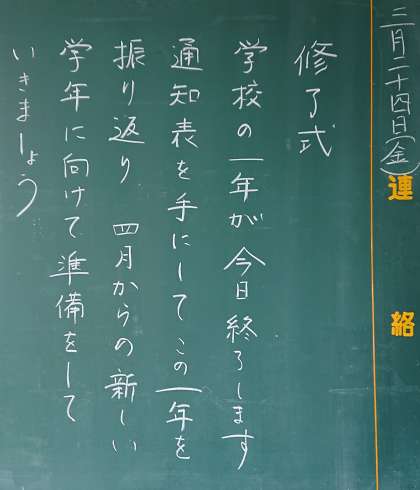 三月二十四日(金)
連絡
修了式
学校の一年が今日終了します
通知表を手にしてこの一年を
振り返り 四月からの新しい
学年に向けて準備をして
いきましょう